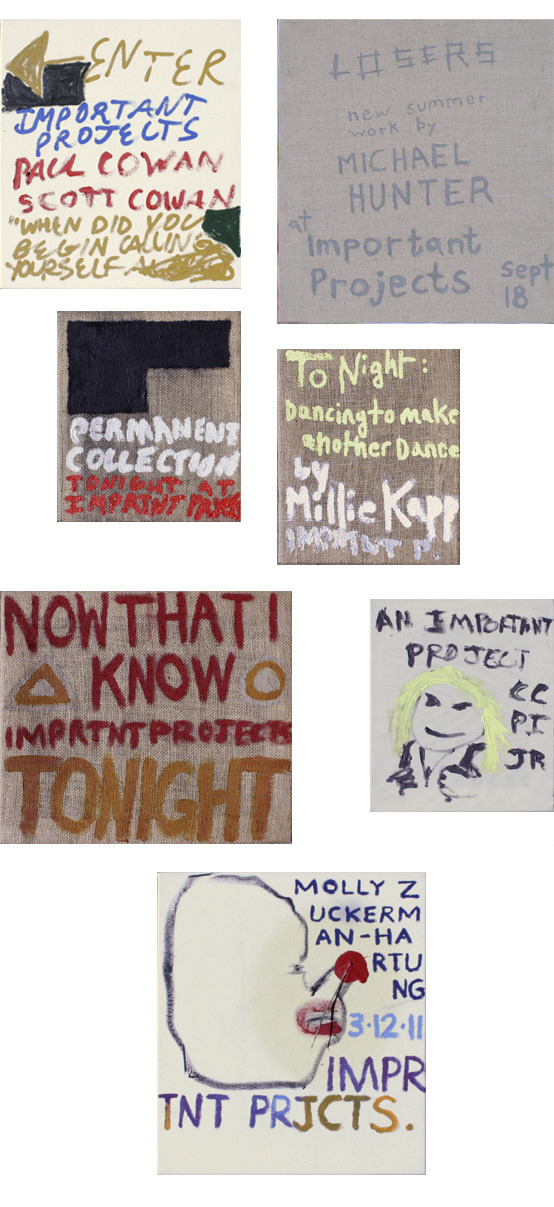 ENTER
IMPORTANT
PROJECTS
PAUL COWAN
SCOTT COWAN
"WHEN DID YOU
BEGIN CALLING
YOURSELF A
LOSERS
new summer
work by
MICHAEL
HUNTER
at
Important
Projects
sept
18
PERMANENT
COLLECTION
TONIGHT AT
IMPRTNT
TO Night:
Dancing to make
another Dance
by
Millie Kapp
IMPRTNT P.
NOW THAT I
KNOW
IMPRTNT PROJECTS
TONIGHT
AN IMPORTANT
PROJECT
CC
PI
JR
MOLLY Z
UCKERM
AN-HA
RTU
NG
3.12.11
IMPR
TNT PRJCTS.